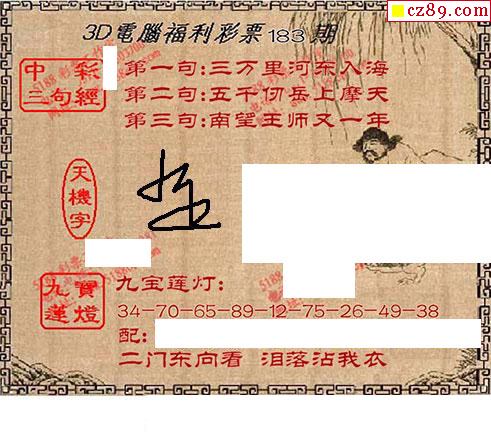 cz89.com
3D電腦福利彩票183期
中彩三句經
第一句:三万里河东入海
第二句:五千仞岳上摩天
第三句:南望王师又一年
天機字
九寶蓮燈
九宝莲灯:
34-70-65-89-12-75-26-49-38
配:
二门东向看 泪落沾我衣